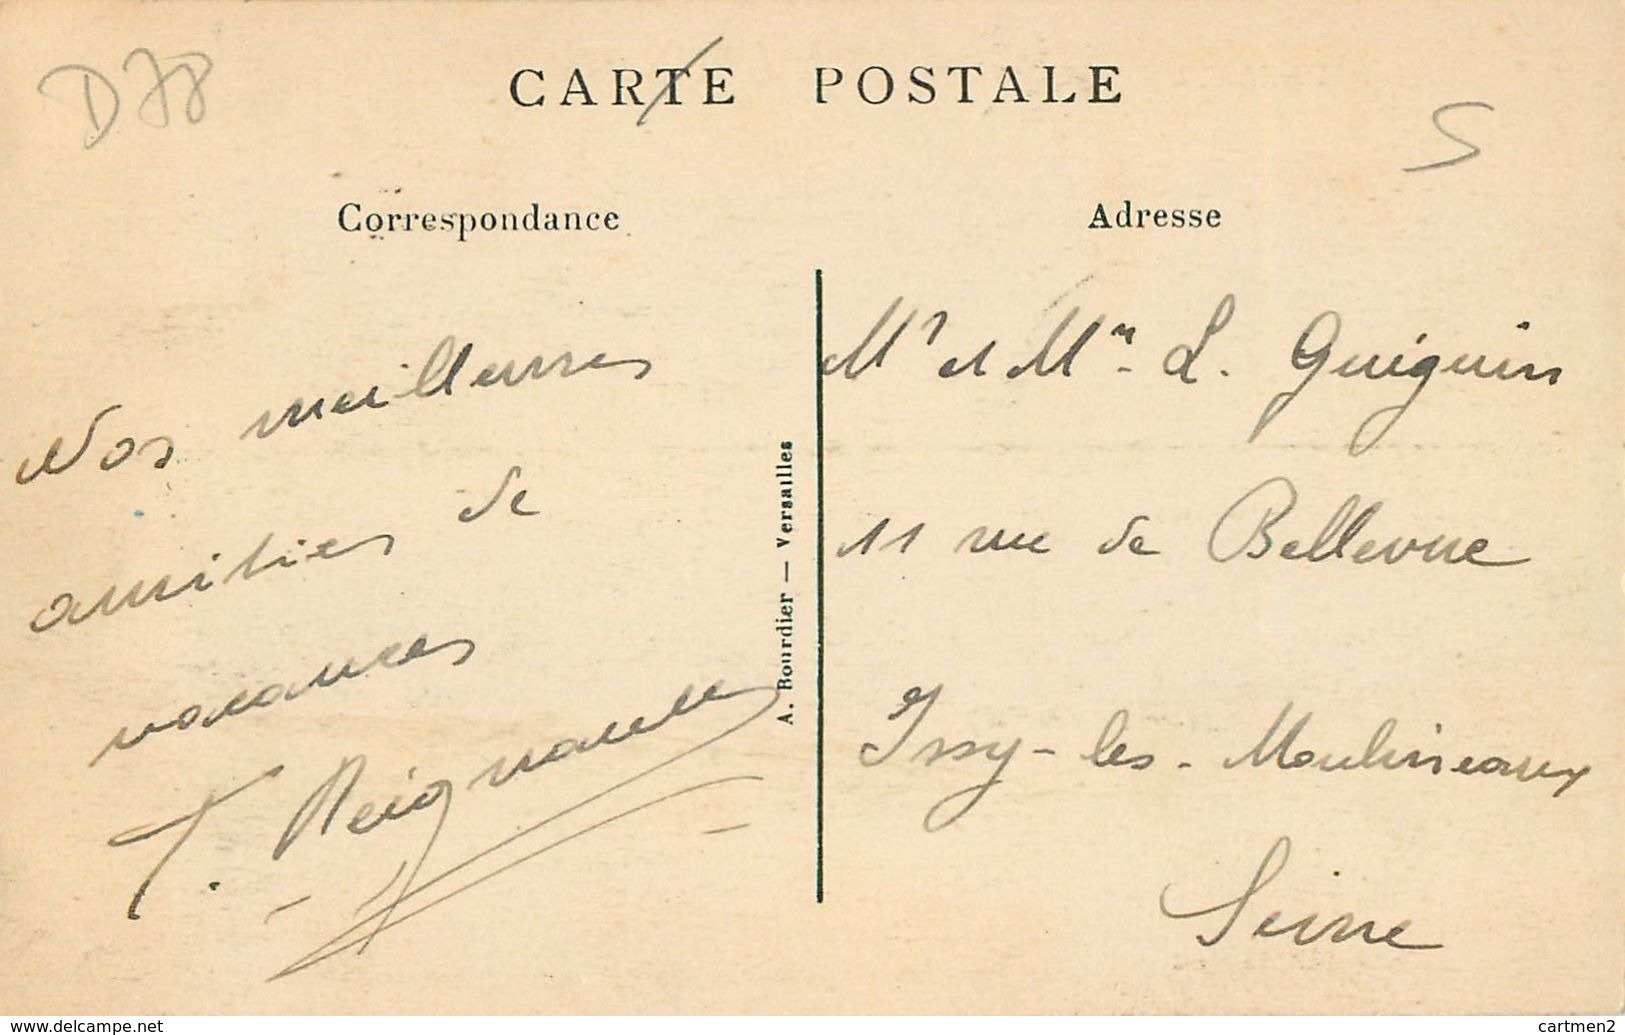 D78
CARTE POSTALE
S
Correspondance
Adresse
Nos meilleures
amitiés de
vacances
T. Reignault
A. Bourdier — Versailles
Mr et Mm. L. Guiguin
11 rue de Bellevue
Issy-les-Moulineaux
Seine
www.delcampe.net
cartmen2